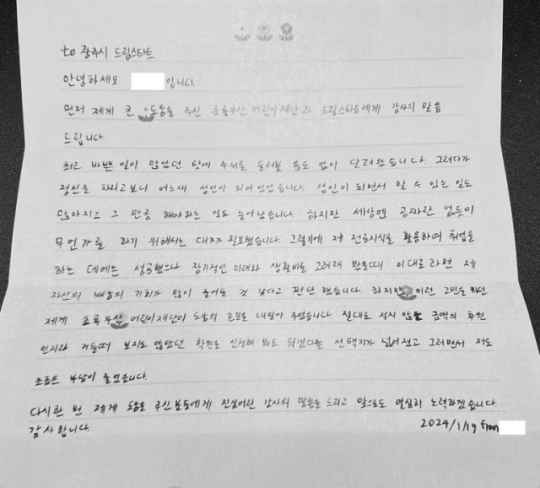 to 광주시 드림스타트
안녕하세요 입니다
먼저 제게 큰 도움을 주신 초록우산 어린이재단과 드림스타트에게 감사의 말씀
드립니다
최근 바쁜 일이 많았던 탓에 주위를 둘러볼 틈도 없이 달려왔습니다 그러다가
정신을 차리고보니 어느새 성인이 되어있었습니다. 성인이 되면서 할 수 있는 일도
많아지고 그 만큼 해야하는 일도 늘어났습니다. 하지만 세상엔 공짜란 없듯이
무언가를 하기 위해서는 대가가 필요했습니다 그렇기에 제 전공지식을 활용하여 취업을
하는 데에는 성공했으나 장기적인 미래와 생활비를 고려해 봤을때 이대로 라면 제
자신의 배움의 기회가 많이 줄어들 것 같다고 판단 했습니다 하지만 이런 고민을 하던
제게 초록우산 어린이재단이 도움의 손길을 내밀어 주었습니다 절대로 적지 않을 금액의 후원
인지라 거들떠 보지도 않았던 학원을 신청해 봐도 되겠다는 선택지가 넓어졌고 그러면서 저도
조금은 부담이 줄었습니다.
다시한 번 제게 도움 주신분들에게 진심어린 감사의 말씀을 드리고 앞으로도 열심히 노력하겠습니다.
감사합니다. 2024/1/19 from